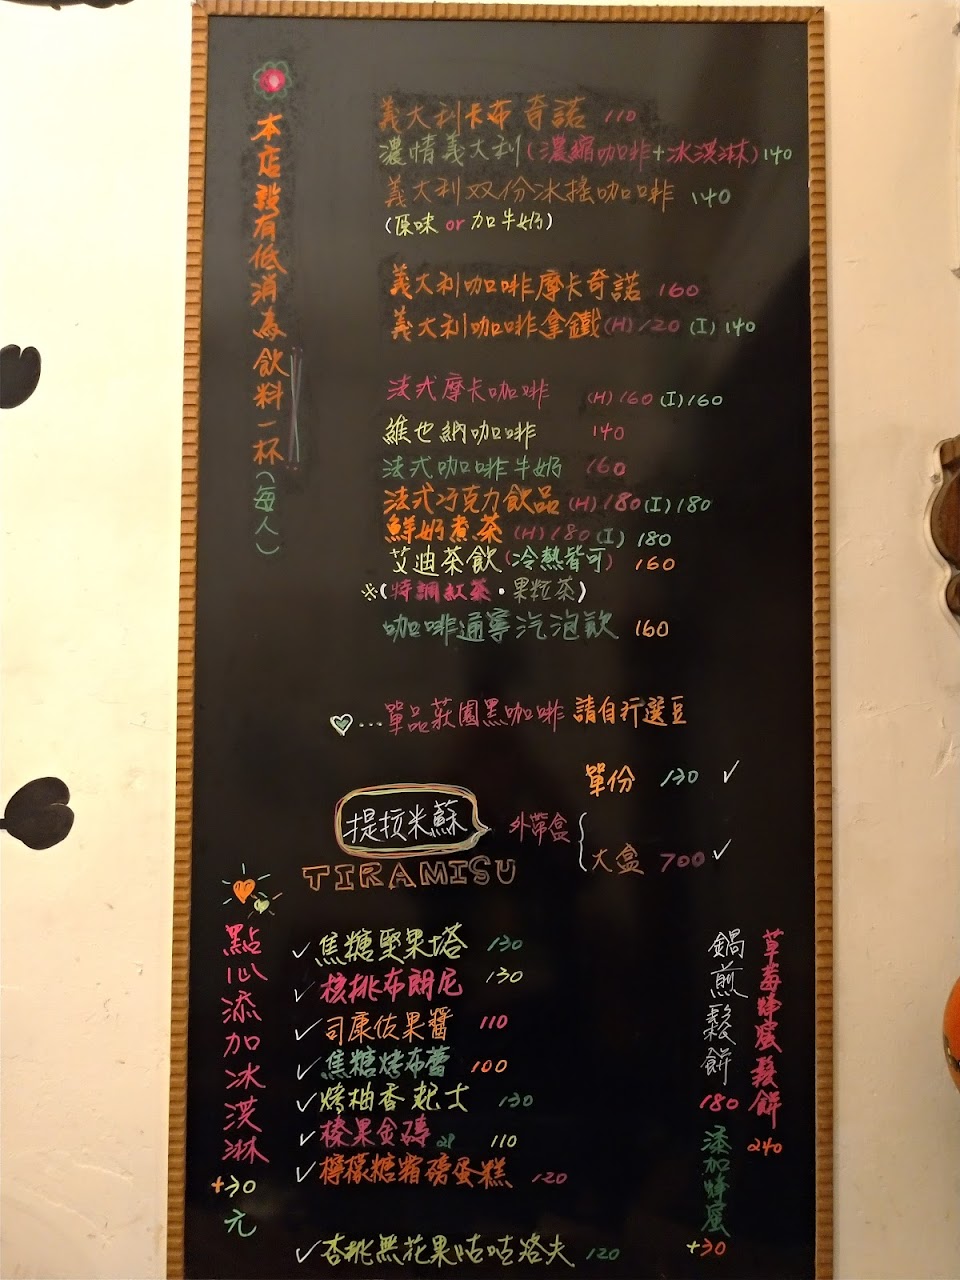 本店設有低消為飲料一杯(每人)
義大利卡布奇諾 110
濃情義大利(濃縮咖啡+冰淇淋)140
義大利双份冰搖咖啡 140
(原味 or 加牛奶)
義大利咖啡摩卡奇諾 160
義大利咖啡拿鐵(H)120 (I)140
法式摩卡咖啡 (H)160 (I)160
維也納咖啡 140
法式咖啡牛奶 160
法式巧克力飲品(H)180(I)180
鮮奶煮茶(H)180(I)180
艾迪茶飲(冷熱皆可) 160
※(特調紅茶·果粒茶)
咖啡通寧汽泡飲 160
...單品莊園黑咖啡 請自行選豆
提拉米蘇
TIRAMISU
外帶盒
單份 130 ✓
大盒 700 ✓
點心添加冰淇淋
+30元
✓焦糖堅果塔 130
✓核桃布朗尼 130
✓司康佐果醬 110
✓焦糖烤布蕾 100
✓烤柚香起士 130
✓榛果金磚 2P 110
✓檸檬糖霜磅蛋糕 120
✓杏桃無花果咕咕洛夫 120
鍋煎鬆餅 180
添加蜂蜜 +30
草莓蜂蜜鬆餅 240